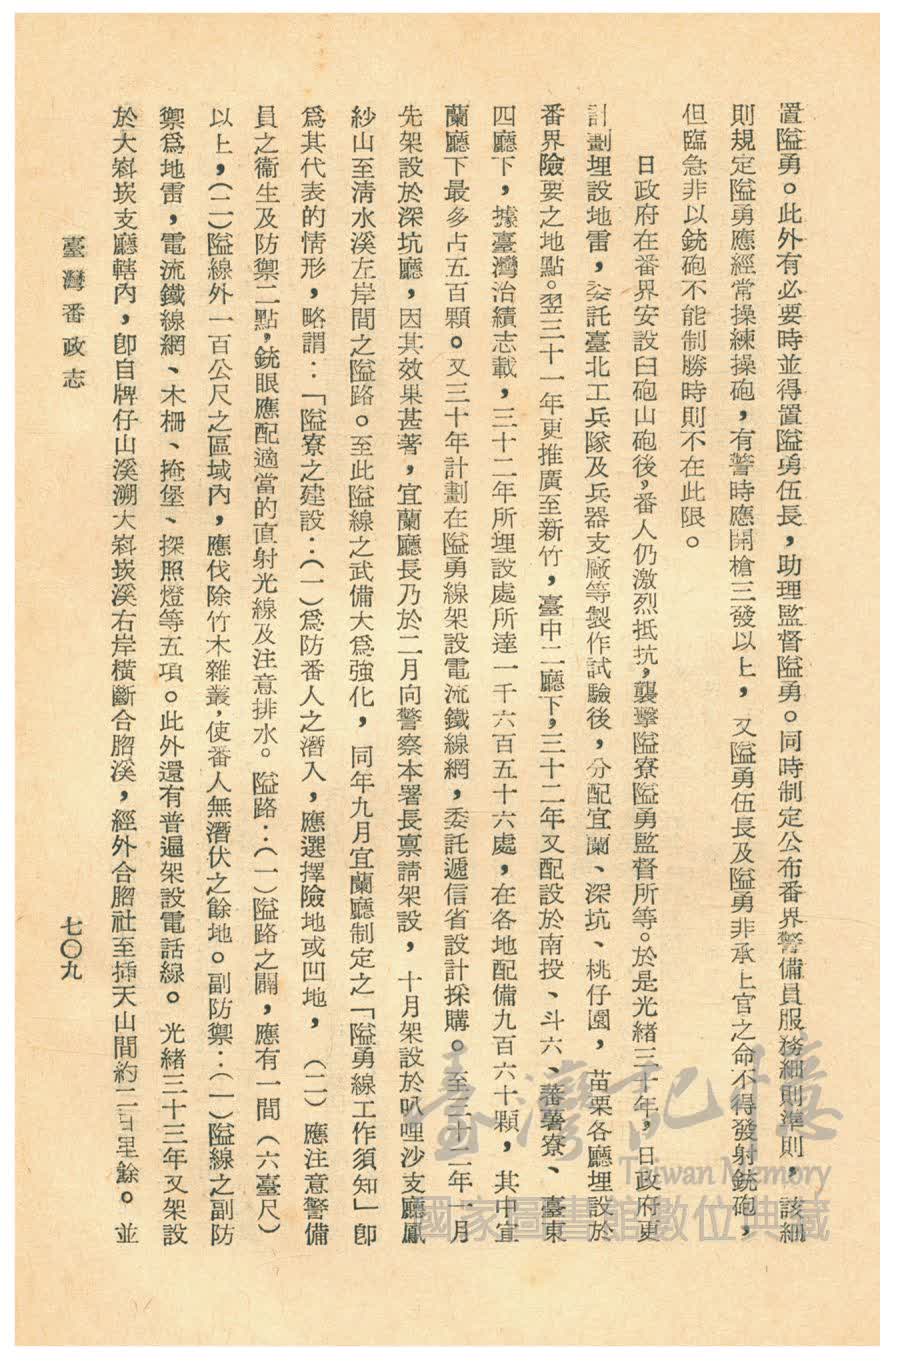 置隘勇。此外有必要時並得置隘勇伍長，助理監督隘勇。同時制定公布番界警備員服務細則準則，該細
則規定隘勇應經常操練操砲，有警時應開槍三發以上，又隘勇伍長及隘勇非承上官之命不得發射銃砲，
但臨急非以銃砲不能制勝時則不在此限。
日政府在番界安設臼砲山砲後，番人仍激烈抵抗，襲擊隘寮隘勇監督所等。於是光緒三十年，日政府更
計劃埋設地雷，委託臺北工兵隊及兵器支廠等製作試驗後，分配宜蘭、深坑、桃仔園，苗栗各廳埋設於
番界險要之地點。翌三十一年更推廣至新竹，臺中二廳下，三十二年又配設於南投、斗六、蕃薯寮、臺東
四廳下，據臺灣治績志載，三十二年所埋設處所達一千六百五十六處，在各地配備九百六十顆，其中宜
蘭廳下最多占五百顆。又三十年計劃在隘勇線架設電流鐵線網，委託遞信省設計採購。至三十二年一月
先架設於深坑廳，因其效果甚著，宜蘭廳長乃於二月向警察本署長稟請架設，十月架設於叭哩沙支廳鳳
紗山至清水溪左岸間之隘路。至此隘線之武備大爲強化，同年九月宜蘭廳制定之「隘勇線工作須知」卽
爲其代表的情形，略謂：「隘寮之建設：（一）爲防番人之潛入，應選擇險地或凹地，（二）應注意警備
員之衞生及防禦二點，銃眼應配適當的直射光線及注意排水。隘路：（一）隘路之闊，應有一間（六臺尺）
以上，（二）隘線外一百公尺之區域內，應伐除竹木雜叢，使番人無潛伏之餘地。副防禦：（一）隘線之副防
禦爲地雷，電流鐵線網、木柵、掩堡、探照燈等五項。此外還有普遍架設電話線。光緒三十三年又架設
於大嵙崁支廳轄內，卽自牌仔山溪溯大嵙崁溪右岸橫斷合脗溪，經外合脗社至插天山間約二日里餘。並
臺灣番政志
七〇九
臺灣記憶
Taiwan Memory
國家圖書館數位典藏